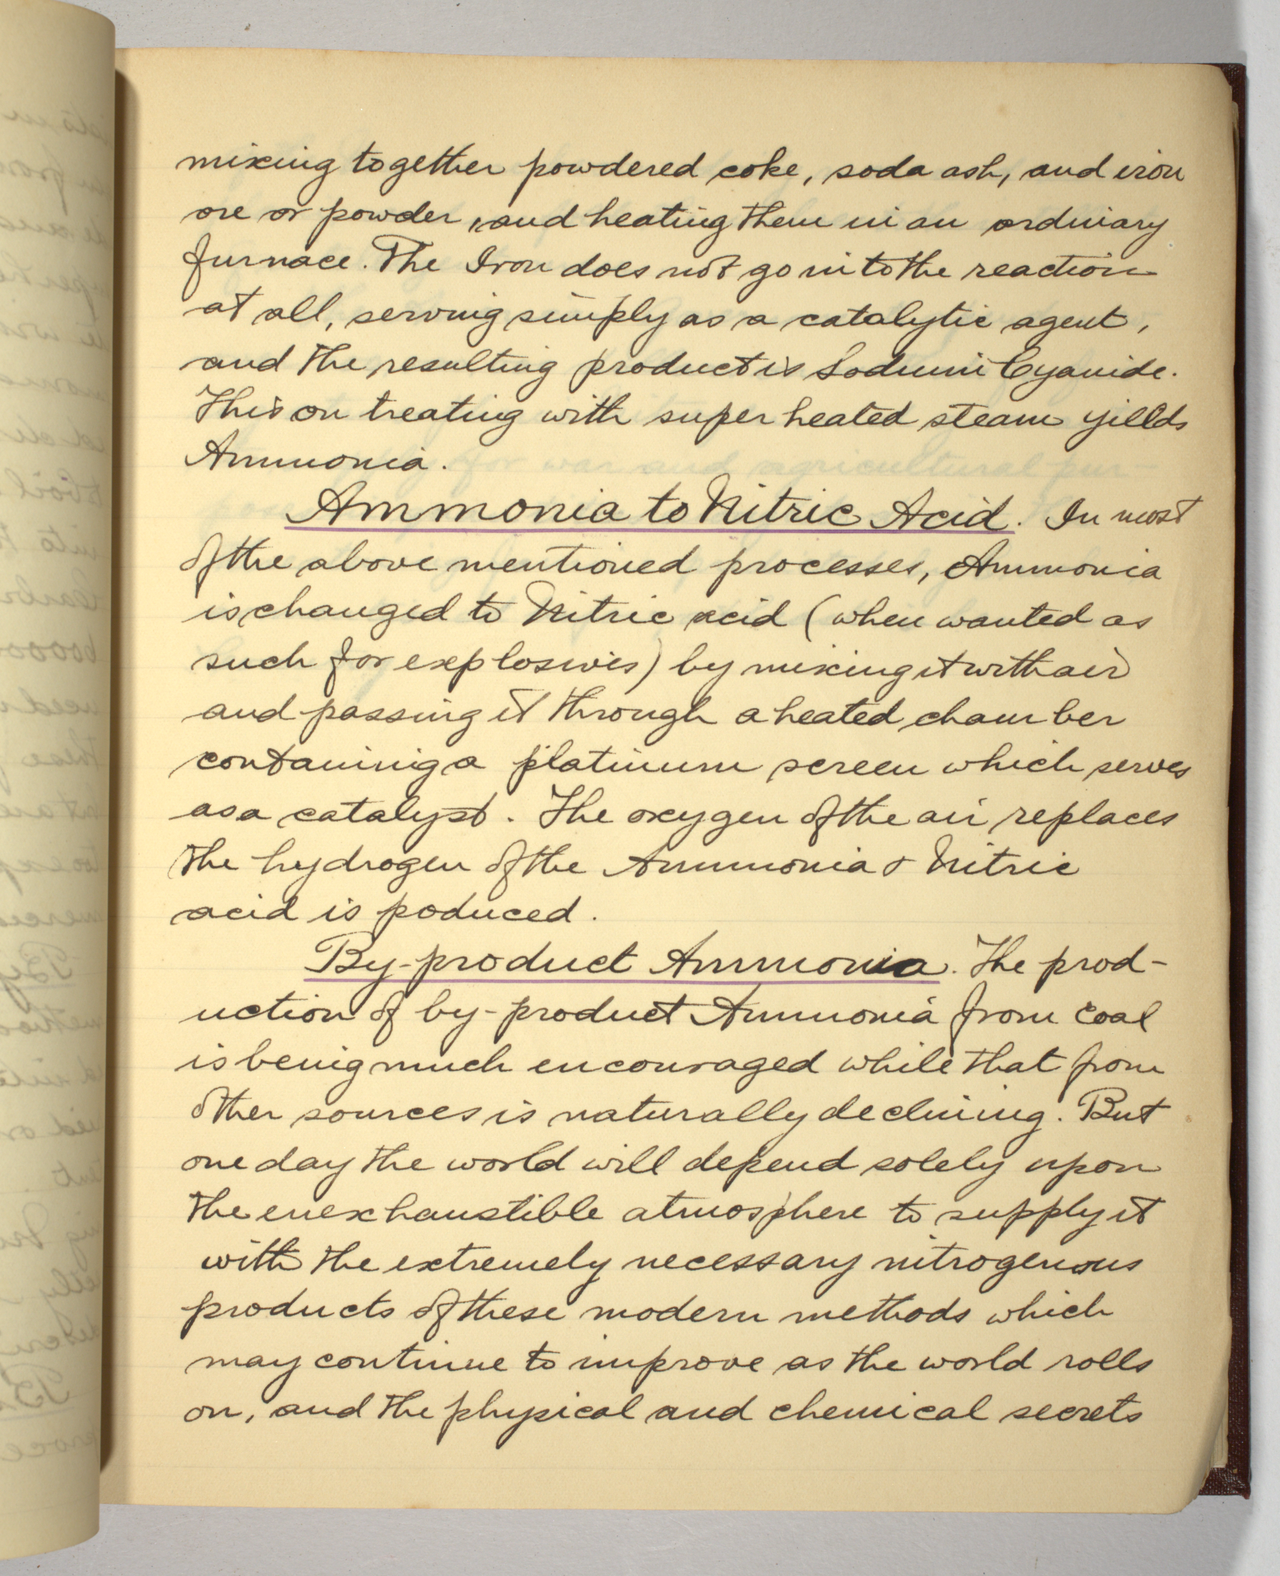 mixing together powdered coke, soda ash, and iron
ore or powder, and heating them in an ordinary
furnace. The Iron does not go into the reaction
at all, serving simply as a catalytic agent,
and the resulting product is Sodium Cyanide.
This on treating with super heated steam yillds
Ammonia.
Ammonia to Nitric Acid. In most
of the above mentioned processes, Ammonia
is changed to Nitric acid (when wanted as
such for explosives) by mixing it with air
and passing it through a heated chamber
containing a platinum screen which serves
as a catalyst. The oxygen of the air replaces
the hydrogen of the Ammonia & Nitric
acid is poduced.
By-product Ammonia. The prod-
uction of by-product Ammonia from Coal
is being much encouraged while that from
other sources is naturally declining. But
one day the world will depend solely upon
the enexhaustible atmosphere to supply it
with the extremely necessary nitrogenous
products of these modern methods which
may continue to improve as the world rolls
on, and the physical and chemical secrets